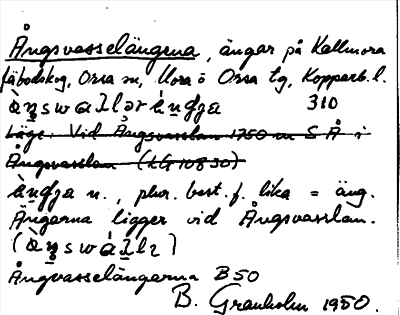 Ångsvasselängerna, ängar på Kallmora
fäbodskog, Orsa sn, Mora o Orsa tg, Kopparb. l.
310
Läge: Vid Ångsvasslan 1750 m S Å i
Ångvasslan (LG 10830)
n., plur. best. f. lika = äng.
Ängarna ligger vid Ångsvasslan.
Ångvasselängarna B50
B. Granholm 1950.